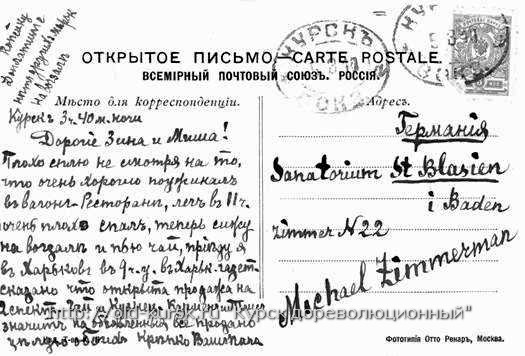 КУРСКЪ
КУРСКЪ
ОТКРЫТОЕ ПИСЬМО CARTE POSTALE.
ВСЕМІРНЫЙ ПОЧТОВЫЙ СОЮЗЪ. РОССІЯ.
на вокзалѣ
Мѣсто для корреспонденціи.
Адресъ.
Курскъ 3ч. 40м. ночи
Дорогіе Зина и Миша!
Плохо сплю не смотря на то,
что очень хорошо поужиналъ
въ вагонѣ-Ресторанѣ, легъ въ 11ч.
очень плохо спалъ, теперь сижу
на вокзалѣ и пью чай, пріѣду я
въ Харьковъ въ 9 ч. у. въ Харьк. газет.
сказано что открыта продажа на
2 спект.
значитъ на объявленныя все продано
цѣлую Крѣпко Вашъ папа
Германія
Sanatorium St Blasien
i Baden
Zimmer N 22
Michael Zimmerman
http://old-kursk.ru "Курск дореволюционный"
Фототипія Отто Ренаръ, Москва.